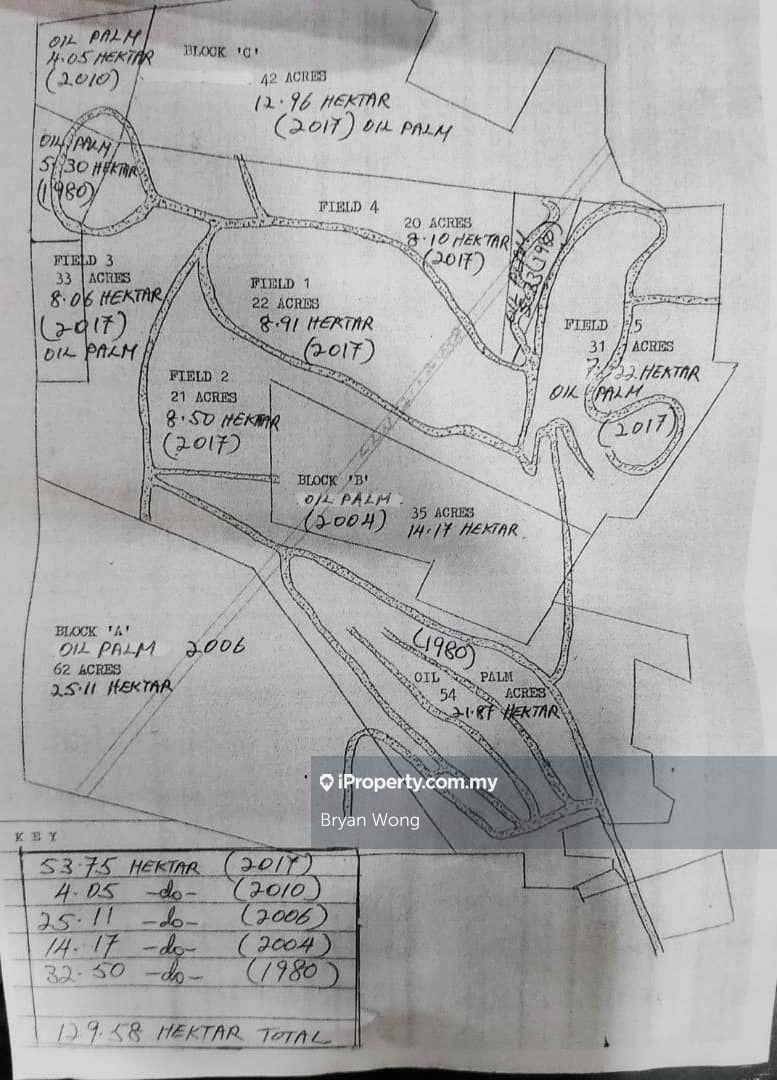 OIL PALM
4.05 HEKTAR
(2010)
BLOCK 'C'
42 ACRES
12.96 HEKTAR
(2017) OIL PALM
OIL PALM
5.30 HEKTAR
(1980)
FIELD 4
20 ACRES
8.10 HEKTAR
(2017)
OIL PALM
(1980)
FIELD 3
33 ACRES
8.06 HEKTAR
(2017)
OIL PALM
FIELD 1
22 ACRES
8.91 HEKTAR
(2017)
FIELD 5
31 ACRES
HEKTAR
OIL PALM
(2017)
FIELD 2
21 ACRES
8.50 HEKTAR
(2017)
BLOCK 'B'
OIL PALM
(2004)
35 ACRES
14.17 HEKTAR
BLOCK 'A'
OIL PALM 2006
62 ACRES
25.11 HEKTAR
(1980)
OIL PALM
54 ACRES
21.87 HEKTAR
iProperty.com.my
Bryan Wong
KEY
53.75 HEKTAR (2017)
4.05 -do- (2010)
25.11 -do- (2006)
14.17 -do- (2004)
32.50 -do- (1980)
129.58 HEKTAR TOTAL